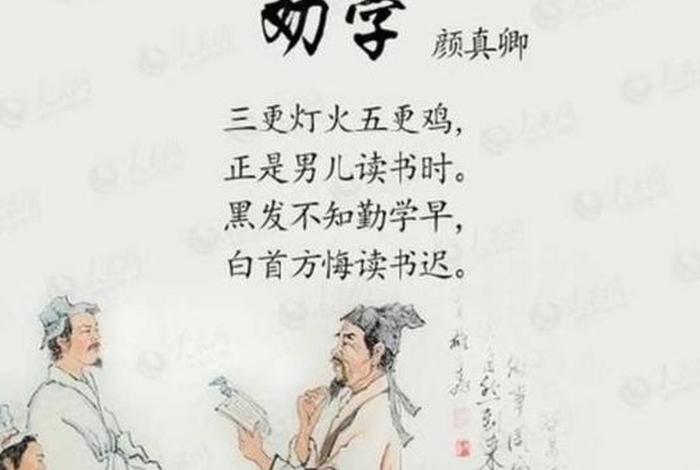 劝学 颜真卿
三更灯火五更鸡，
正是男儿读书时。
黑发不知勤学早，
白首方悔读书迟。